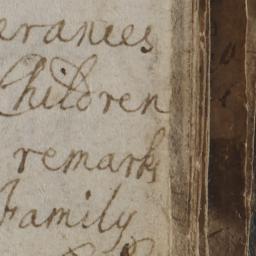 erances
Children
remarks
Family